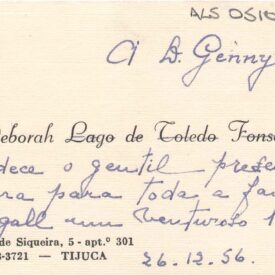 ALS OSIE
A D. Genny
eborah Lago de Toledo Fons
dece o gentil prese
ra para toda a fa
gall um venturoso 1
de Siqueira, 5 - apt.º 301
8-3721 — TIJUCA
26.12.56.